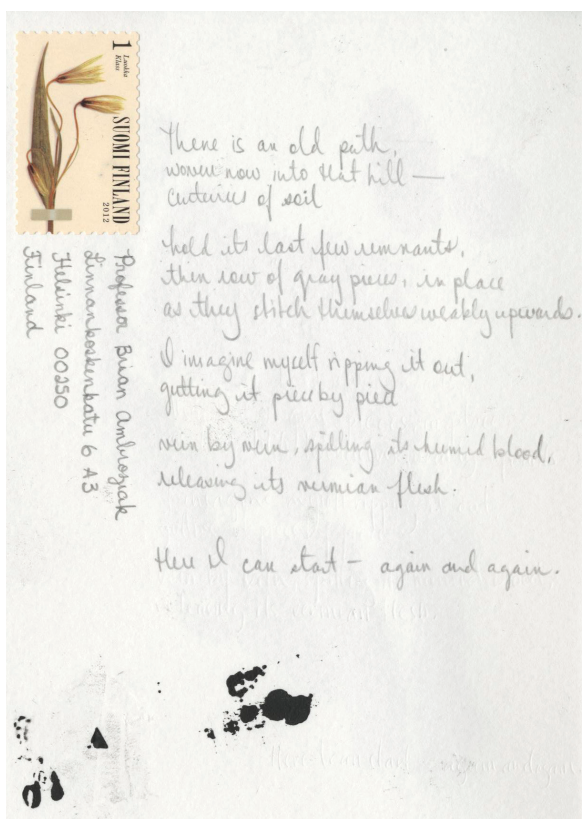 1 Luokka
Klass
SUOMI FINLAND
2012
Professor Brian Ambroziak
Linnankoskenkatu 6 A3
Helsinki 00250
Finland
There is an old path,
woven now into that hill —
centuries of soil
hold its last few remnants,
thin row of gray pieces, in place
as they stitch themselves weakly upwards.
I imagine myself ripping it out,
gutting it piece by piece
vein by vein, spilling its humid blood,
releasing its vermian flesh.
Here I can start – again and again.